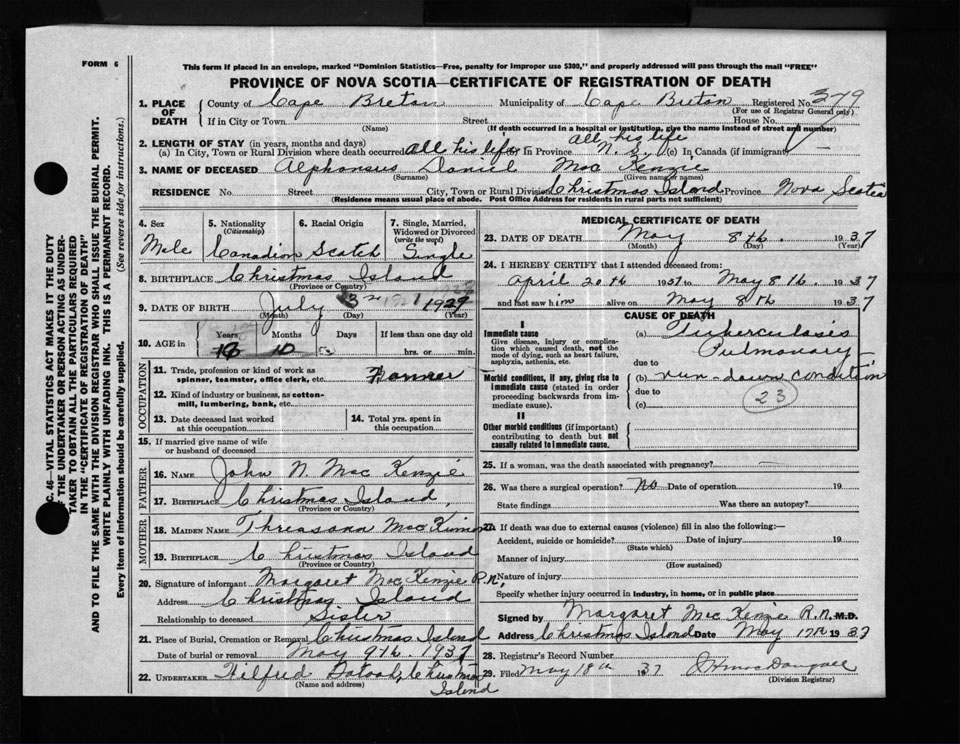 FORM 6
This form if placed in an envelope, marked "Dominion Statistics—Free, penalty for improper use $300," and properly addressed will pass through the mail "FREE"
PROVINCE OF NOVA SCOTIA—CERTIFICATE OF REGISTRATION OF DEATH
1. PLACE OF DEATH
County of Cape Breton Municipality of Cape Breton Registered No. 379
(For use of Registrar General only)
If in City or Town Street House No.
(Name) (If death occurred in a hospital or institution, give the name instead of street and number)
2. LENGTH OF STAY (in years, months and days)
(a) In City, Town or Rural Division where death occurred all his life (b) In Province all his life N. S. (c) In Canada (if immigrant)
3. NAME OF DECEASED Alphonsus Daniel Mac Kenzie
(Surname) (Given name or names)
RESIDENCE No. Street City, Town or Rural Division Christmas Island Province Nova Scotia
(Residence means usual place of abode. Post Office Address for residents in rural parts not sufficient)
4. Sex
Male
5. Nationality
(Citizenship)
Canadian
6. Racial Origin
Scotch
7. Single, Married, Widowed or Divorced
(write the word)
Single
8. BIRTHPLACE Christmas Island
(Province or Country)
9. DATE OF BIRTH July 3rd 1929
(Month) (Day) (Year)
10. AGE in
Years Months Days If less than one day old
10 hrs. or min.
OCCUPATION
11. Trade, profession or kind of work as spinner, teamster, office clerk, etc. Farmer
12. Kind of industry or business, as cotton-mill, lumbering, bank, etc.
13. Date deceased last worked at this occupation
14. Total yrs. spent in this occupation
15. If married give name of wife or husband of deceased
FATHER
16. NAME John N. Mac Kenzie
17. BIRTHPLACE Christmas Island,
(Province or Country)
MOTHER
18. MAIDEN NAME Mac Kinnon
19. BIRTHPLACE Christmas Island
(Province or Country)
20. Signature of informant Margaret Mac Kenzie R.N.
Address Christmas Island
Relationship to deceased Sister
21. Place of Burial, Cremation or Removal Christmas Island
Date of burial or removal May 9th. 1937
22. UNDERTAKER Wilfred Christmas Island
(Name and address)
MEDICAL CERTIFICATE OF DEATH
23. DATE OF DEATH May 8th. 1937
(Month) (Day) (Year)
24. I HEREBY CERTIFY that I attended deceased from:
April 20th 1937 to May 8th. 1937
and last saw him alive on May 8th 1937
CAUSE OF DEATH
I
Immediate cause
Give disease, injury or complication which caused death, not the mode of dying, such as heart failure, asphyxia, asthenia, etc.
(a) Tuberculosis
Pulmonary
due to
Morbid conditions, if any, giving rise to immediate cause (stated in order proceeding backwards from immediate cause).
(b) run down condition
due to
23
(c)
II
Other morbid conditions (if important) contributing to death but not causally related to immediate cause.
25. If a woman, was the death associated with pregnancy?
26. Was there a surgical operation? No Date of operation 19
State findings Was there an autopsy?
27. If death was due to external causes (violence) fill in also the following:—
Accident, suicide or homicide? Date of injury 19
(State which)
Manner of injury
(How sustained)
Nature of injury
Specify whether injury occurred in industry, in home, or in public place
Signed by Margaret Mac Kenzie R.N. M.D.
Address Christmas Island Date May 17th 1937
28. Registrar's Record Number
29. Filed May 18th 37
(Division Registrar)
C. 46—VITAL STATISTICS ACT MAKES IT THE DUTY
OF THE UNDERTAKER OR PERSON ACTING AS UNDERTAKER TO OBTAIN ALL THE PARTICULARS REQUIRED
IN THE "CERTIFICATE OF REGISTRATION OF DEATH"
AND TO FILE THE SAME WITH THE DIVISION REGISTRAR WHO SHALL ISSUE THE BURIAL PERMIT.
WRITE PLAINLY WITH UNFADING INK. THIS IS A PERMANENT RECORD.
Every item of information should be carefully supplied. (See reverse side for instructions.)